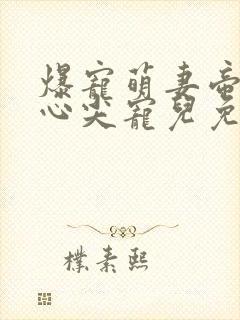 爆寵萌妻帝
心尖寵兒免
樸素熙